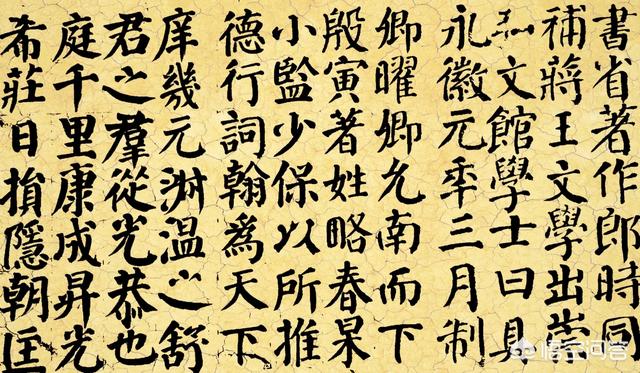 書省著作郎時同
補蔣王文學出崇
弘文館學士曰具
永徽元年三月制
卿曜卿允南而下
殷寅著姓略春杲
小監少保以所推
德行詞翰為天下
庠幾元淑溫之舒
君之羣從光恭也
庭千里康成昇光
希莊日損隱朝匡
悟空问答